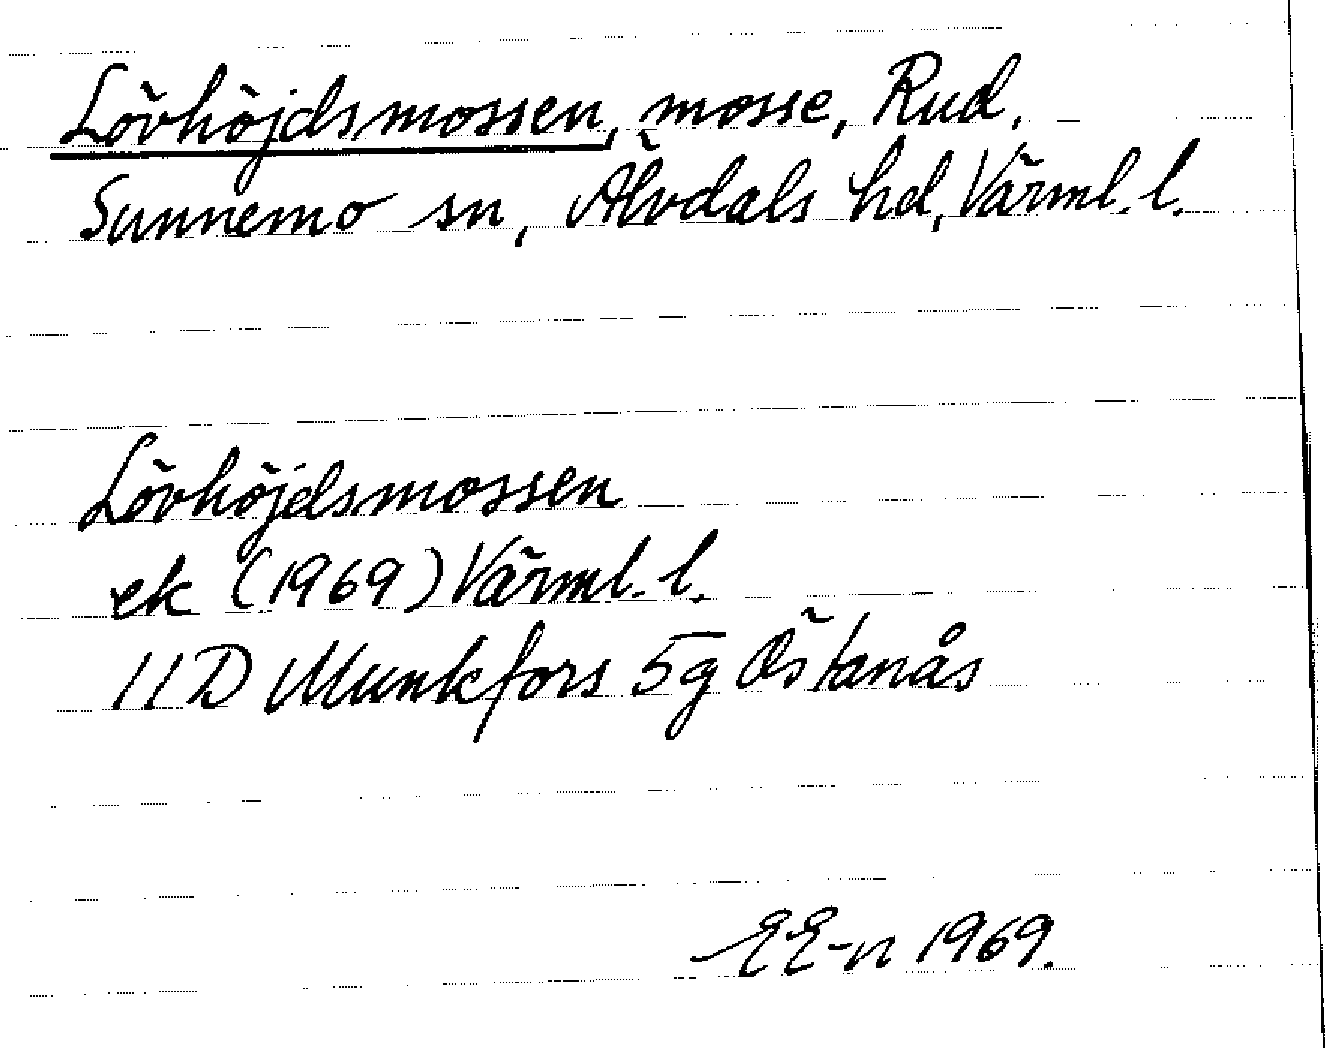 Lövhöjdsmossen, mosse, Rud,
Sunnemo sn, Älvdals hd, Värml. l.
Lövhöjdsmossen
ek (1969) Värml. l.
11D Munkfors 5g Östanås
EE-n 1969.